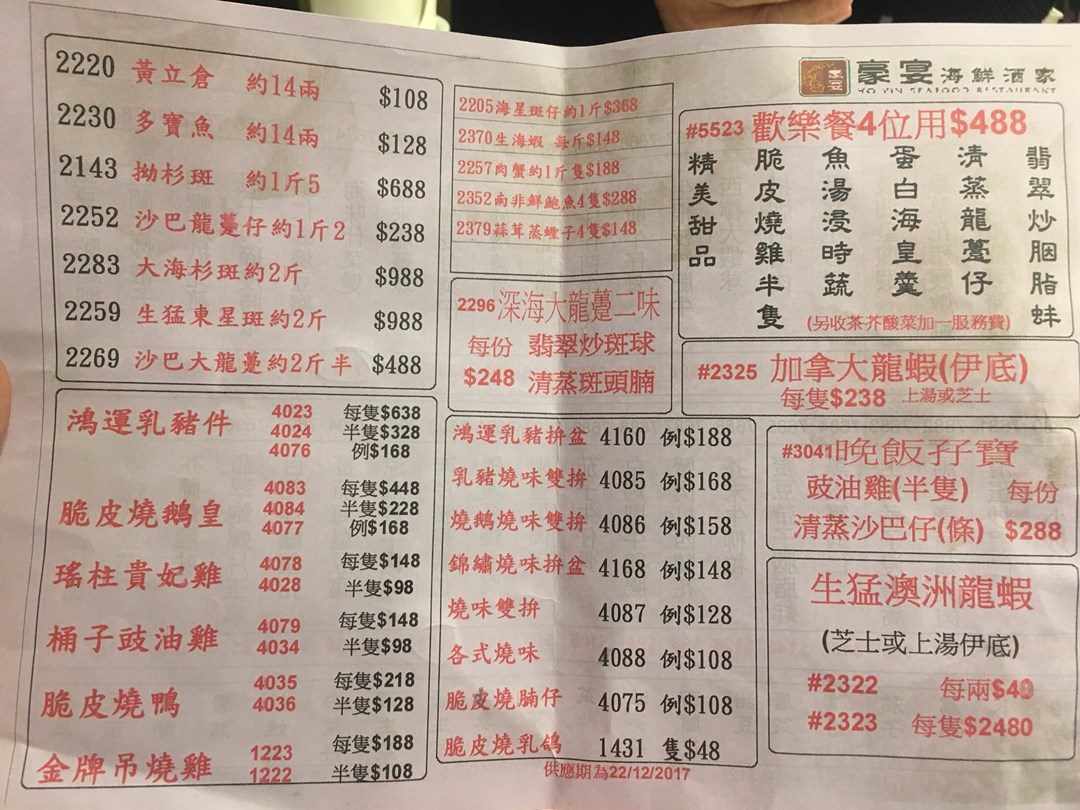 豪宴海鮮酒家
HO YIN SEAFOOD RESTAURANT
2220 黃立倉 約14兩 $108
2230 多寶魚 約14兩 $128
2143 拗杉斑 約1斤5 $688
2252 沙巴龍躉仔約1斤2 $238
2283 大海杉斑約2斤 $988
2259 生猛東星斑約2斤 $988
2269 沙巴大龍躉約2斤半 $488
2205海星斑仔約1斤$368
2370生海蝦 每斤$148
2257肉蟹約1斤隻$188
2352南非鮮鮑魚4隻$288
2379蒜茸蒸蟶子4隻$148
2296深海大龍躉二味
每份 翡翠炒斑球
$248 清蒸斑頭腩
#5523 歡樂餐4位用$488
翡翠炒胭脂蚌
清蒸龍躉仔
蛋白海皇羹
魚湯浸時蔬
脆皮燒雞半隻
精美甜品
(另收茶芥酸菜加一服務費)
#2325 加拿大龍蝦(伊底)
每隻$238 上湯或芝士
鴻運乳豬件 4023 每隻$638
4024 半隻$328
4076 例$168
脆皮燒鵝皇 4083 每隻$448
4084 半隻$228
4077 例$168
瑤柱貴妃雞 4078 每隻$148
4028 半隻$98
桶子豉油雞 4079 每隻$148
4034 半隻$98
脆皮燒鴨 4035 每隻$218
4036 半隻$128
金牌吊燒雞 1223 每隻$188
1222 半隻$108
鴻運乳豬拚盆 4160 例$188
乳豬燒味雙拚 4085 例$168
燒鵝燒味雙拚 4086 例$158
錦繡燒味拚盆 4168 例$148
燒味雙拚 4087 例$128
各式燒味 4088 例$108
脆皮燒腩仔 4075 例$108
脆皮燒乳鴿 1431 隻$48
供應期為22/12/2017
#3041晚飯孖寶
豉油雞(半隻) 每份
清蒸沙巴仔(條) $288
生猛澳洲龍蝦
(芝士或上湯伊底)
#2322 每兩$40
#2323 每隻$2480